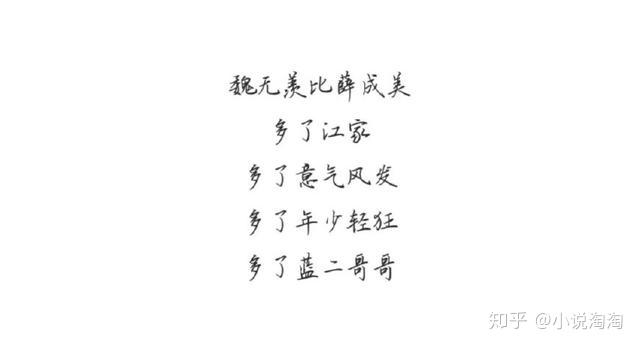 魏无羡比薛成美
多了江家
多了意气风发
多了年少轻狂
多了蓝二哥哥
知乎 @小说淘淘